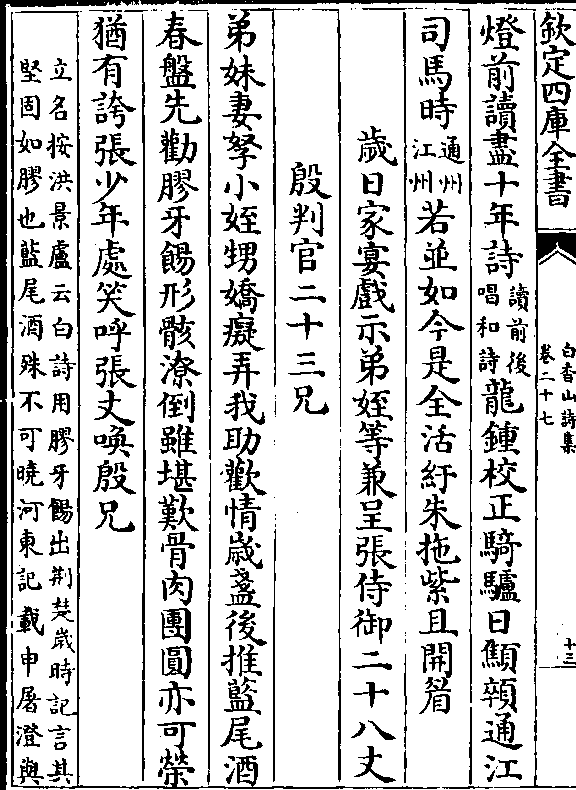 欽定四庫全書
白香山詩集
卷二十七
十三
燈前讀盡十年詩讀前後唱和詩龍鍾校正騎驢日顦顇通江
司馬時通州江州若並如今是全活紆朱拖紫且開眉
歲日家宴戲示弟姪等兼呈張侍御二十八丈
殷判官二十三兄
弟妹妻孥小姪甥嬌癡弄我助歡情歲盞後推藍尾酒
春盤先勸膠牙餳形骸潦倒雖堪歎骨肉團圓亦可榮
猶有誇張少年處笑呼張丈喚殷兄
立名按洪景盧云白詩用膠牙餳出荆楚歲時記言其
堅固如膠也藍尾酒殊不可曉河東記載申屠澄與